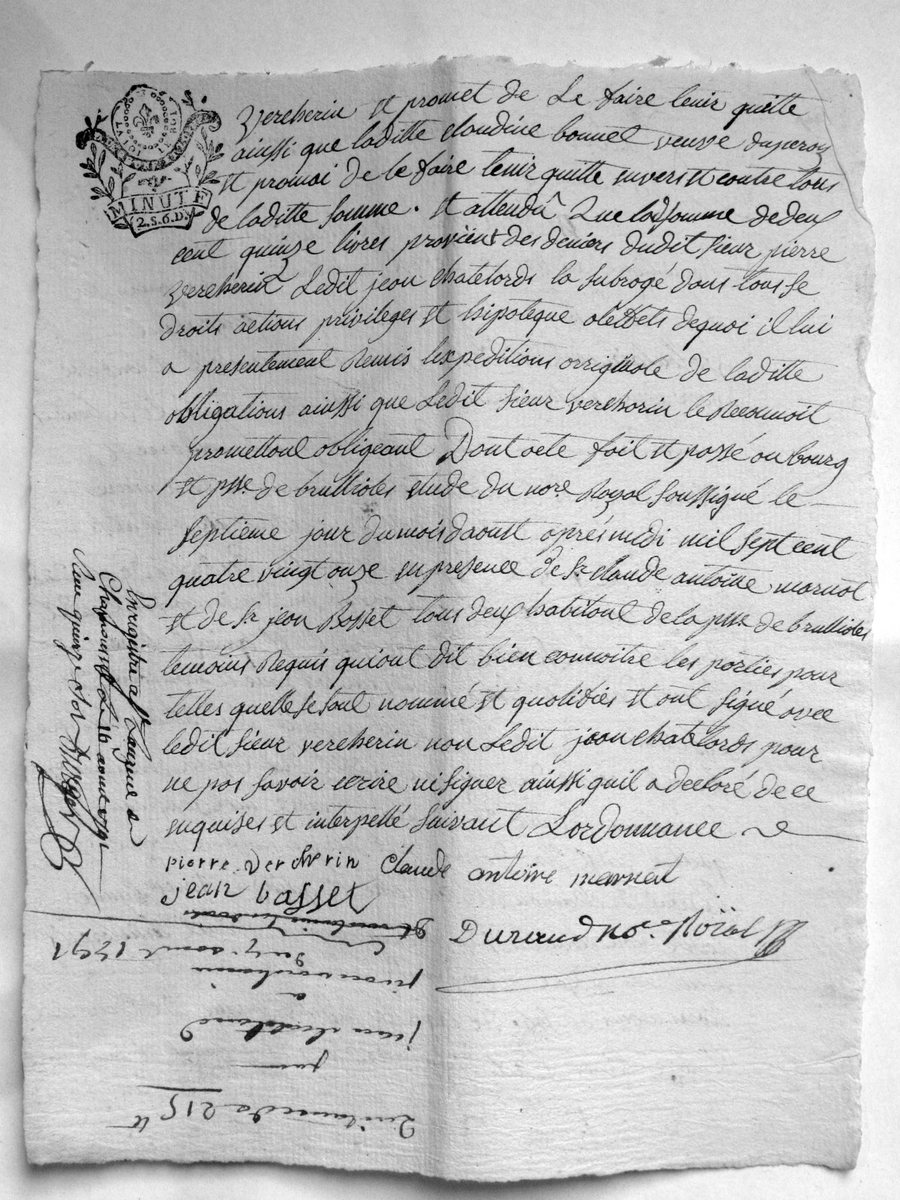 MINUTE
2.S.6.D.
Vercherin et promet de Le faire tenir quitte
ainssi que laditte Claudine bonnet veusve duperoy
et promai de le faire tenir quitte envers et contre tous
de laditte somme. et attendû que lad. somme de deux
cent quinze livres provient des deniers dudit sieur pierre
Vercherin Ledit jean chatelards la subrogé dans tous se
droits actions privileges et hipoteque dequoi il lui
a presentement Remis lexpeditions orriginole de laditte
obligations ainssi que Ledit sieur vercherin le Reconnoit
promettant obligeant Dont acte fait et passé au bourg
et psse de brullioles etude du nore Royal soussigné le
septieme jour du mois daoust aprés midi mil sept cent
quatre vingt onze en presence de Sr claude antoine marnat
et de Sr jean Basset tous deux habitant de la psse de brullioles
temoins Requis qui ont dit bien connoitre les parties pour
telles quelle se sont nommé et qualifiés et ont signé avec
ledit sieur vercherin non Ledit jean chatelards pour
ne pas savoir ecrire ni signer ainssi quil a declaré de ce
enquises et interpellé suivant Lordonnance
pierre vercherin claude antoine marnat
jean basset
Durand nore Roïal
Enregistré a St Laurent de
Chamousset le 16 aout 1791
Reçu quinze sols
Quittance de 215 lt
par
jean chatelard
a
pierre vercherin
du 7 aout 1791